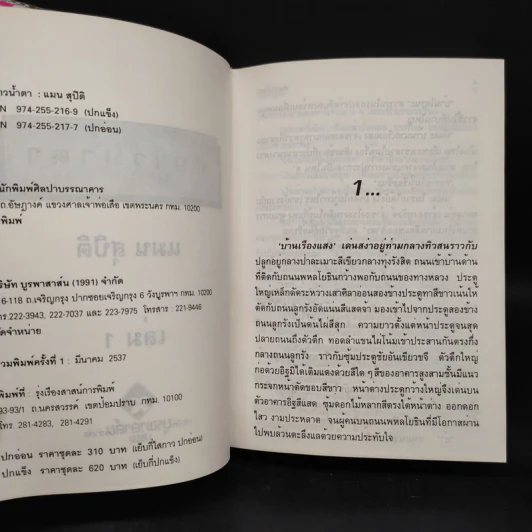 าวน้ำตา : แมน สุปิติ
N 974-255-216-9 (ปกแข็ง)
N 974-255-217-7 (ปกอ่อน)
นักพิมพ์ศิลปาบรรณาคาร
ถ.อัษฎางค์ แขวงศาลเจ้าพ่อเสือ เขตพระนคร กทม. 10200
พิมพ์
ริษัท บูรพาสาส์น (1991) จำกัด
6-118 ถ.เจริญกรุง ปากซอยเจริญกรุง 6 วังบูรพาฯ กทม. 10200
222-3943, 222-7037 และ 223-7975 โทรสาร : 221-9446
จัดจำหน่าย
รวมพิมพ์ครั้งที่ 1 : มีนาคม 2537
พิมพ์ที่ : รุ่งเรืองสาสน์การพิมพ์
93-93/1 ถ.นครสวรรค์ เขตป้อมปราบ กทม. 10100
โทร. 281-4283, 281-4291
ปกอ่อน ราคาชุดละ 310 บาท (เย็บกี่ไสกาว ปกอ่อน)
ปกแข็ง ราคาชุดละ 620 บาท (เย็บกี่ปกแข็ง)
แมน สุปิติ
เล่ม 1
1...
'บ้านเรืองแสง' เด่นสง่าอยู่ท่ามกลางทิวสนราวกับ
ปลูกอยู่กลางป่าละเมาะสีเขียวกลางทุ่งรังสิต ถนนเข้าบ้านด้าน
ที่ติดกับถนนพหลโยธินกว้างพอกับถนนของทางหลวง ประตู
ใหญ่เหล็กดัดระหว่างเสาศิลาอ่อนสองข้างประตูทาสีขาวเน้นให้
ตัดกับถนนลูกรังอัดแน่นสีแสดจ้า มองเข้าไปจากประตูสองข้าง
ถนนลูกรังเป็นต้นไผ่สีสุก ความยาวตั้งแต่หน้าประตูจนสุด
ปลายถนนถึงตัวตึก ทอดลำแขนไผ่โน้มเข้าประสานกันตรงกึ่ง
กลางถนนลูกรัง ราวกับซุ้มประตูชัยอันเขียวขจี ตัวตึกใหญ่
ก่อด้วยอิฐมิได้เติมแต่งด้วยสีใด ๆ สีของอาคารสูงสามชั้นมีแนว
กระจกหน้าตัดขอบสีขาว หน้าต่างประตูกว้างใหญ่จึงเด่นบน
ตัวอาคารอิฐสีแสด ซุ้มดอกไม้หลากสีตรงใต้หน้าต่าง ออกดอก
ไสว งามประหลาด จนผู้คนบนถนนพหลโยธินที่มีโอกาสผ่าน
ไปพบล้วนตะลึงแลด้วยความประทับใจ